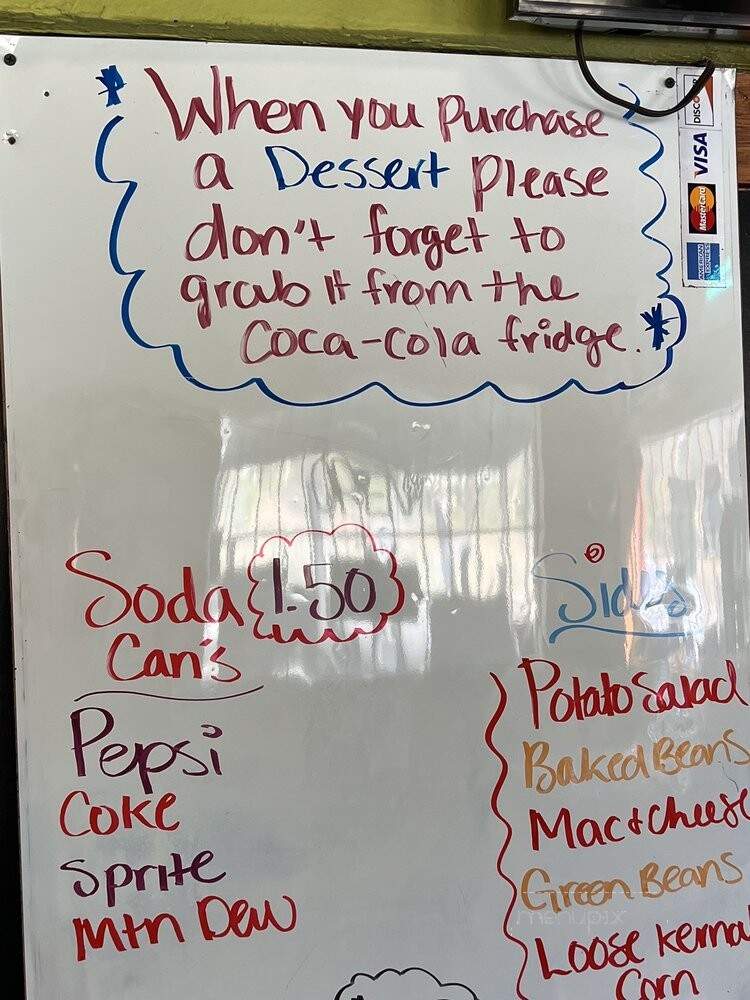 When you purchase
a Dessert please
don't forget to
grab it from the
Coca-Cola fridge.
DISCOVER
VISA
MasterCard
AMERICAN EXPRESS
Soda 1.50
Can's
Pepsi
Coke
Sprite
Mtn Dew
Side's
Potato Salad
Baked Beans
Mac & Cheese
Green Beans
Loose Kernal
Corn
menupix